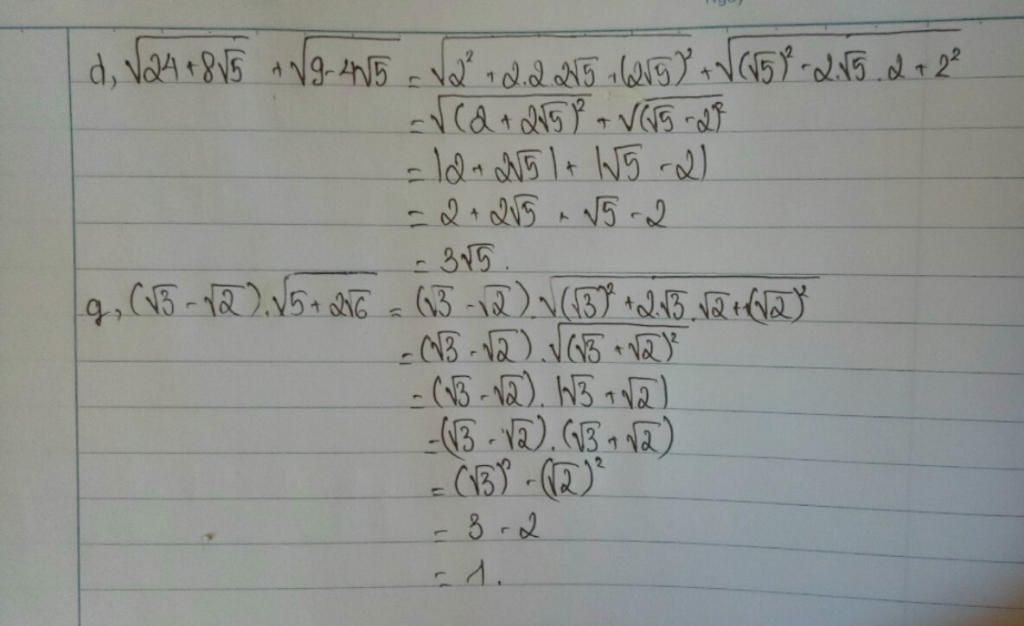 d, √(24+8√5) + √(9-4√5) = √(2² + 2.2.2√5 + (2√5)²) + √((√5)² - 2.√5.2 + 2²)
= √((2 + 2√5)²) + √((√5 - 2)²)
= |2 + 2√5| + |√5 - 2|
= 2 + 2√5 + √5 - 2
= 3√5.
g, (√3 - √2).√(5+2√6) = (√3 - √2).√((√3)² + 2.√3.√2 + (√2)²)
= (√3 - √2).√((√3 + √2)²)
= (√3 - √2).|√3 + √2|
= (√3 - √2).(√3 + √2)
= (√3)² - (√2)²
= 3 - 2
= 1.